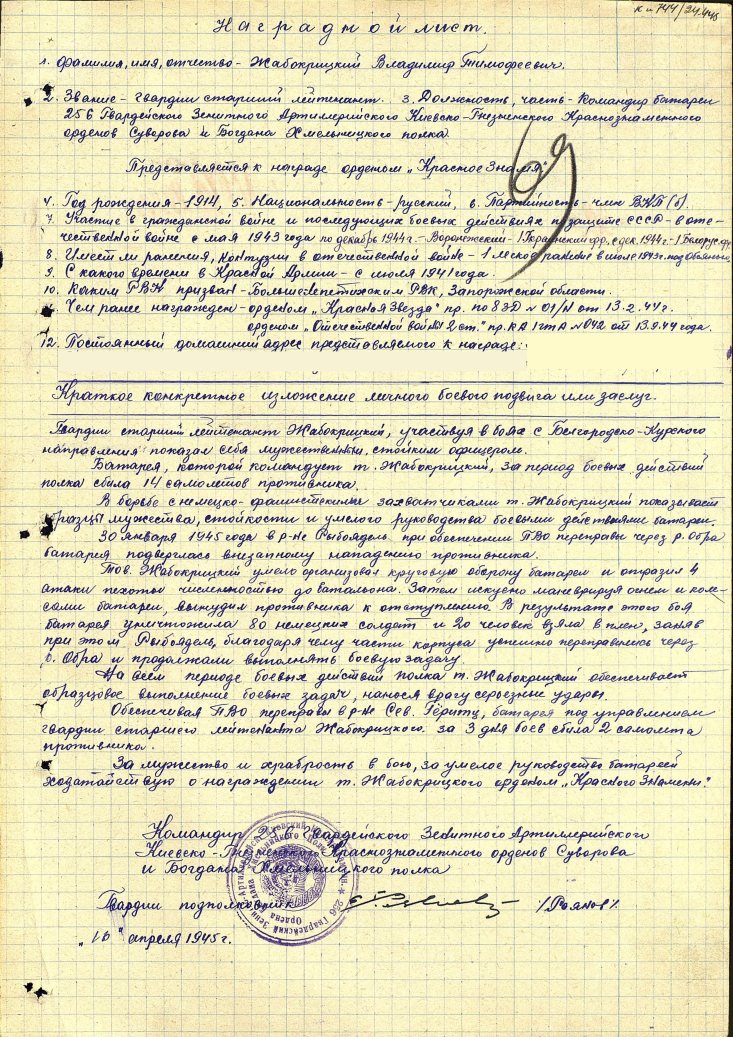 к п 744/24.4.45
Наградной лист.
1. Фамилия, имя, отчество - Жабокрицкий Владимир Тимофеевич.
2. Звание - гвардии старший лейтенант. 3. Должность, часть - Командир батареи
256 Гвардейского Зенитного Артиллерийского Киевско-Гнезненского Краснознаменного
орденов Суворова и Богдана Хмельницкого полка.
Представляется к награде орденом "Красное Знамя".
69
4. Год рождения - 1914, 5. Национальность - русский, 6. Партийность - член ВКП(б).
7. Участие в гражданской войне и последующих боевых действиях по защите СССР - в оте-
чественной войне с мая 1943 года по декабрь 1944г. - Воронежский - 1 Украинский фр., с дек. 1944г. - 1 Белорус. фр.
8. Имеет ли ранения, контузии в отечественной войне - 1 легко ранение в июле 1943г. под Обоянью.
9. С какого времени в Красной Армии - с июля 1941 года.
10. Каким РВК призван - Больше-Лепетихским РВК, Запорожской области.
Чем ранее награжден - орденом "Красная Звезда" пр. по 8 ЗД № 01/Н от 13.2.44г.
орденом "Отечественной войны 2 ст." пр. КА 1 гТА № 042 от 13.9.44 года.
12. Постоянный домашний адрес представляемого к награде:
Краткое конкретное изложение личного боевого подвига или заслуг.
Гвардии старший лейтенант Жабокрицкий, участвуя в боях с Белгородско-Курского
направления показал себя мужественным, стойким офицером.
Батарея, которой командует т. Жабокрицкий, за период боевых действий
полка сбила 14 самолетов противника.
В борьбе с немецко-фашистскими захватчиками т. Жабокрицкий показывает
образцы мужества, стойкости и умелого руководства боевыми действиями батареи.
30 января 1945 года в р-не Рыбоядель при обеспечении ПВО переправы через р. Обра
батарея подверглась внезапному нападению противника.
Тов. Жабокрицкий умело организовал круговую оборону батареи и отразил 4
атаки пехоты численностью до батальона. Затем искусно маневрируя огнем и коле-
сами батареи, вынудил противника к отступлению. В результате этого боя
батарея уничтожила 80 немецких солдат и 20 человек взяла в плен, заняв
при этом Рыбоядель, благодаря чему части корпуса успешно переправились через
р. Обра и продолжали выполнять боевую задачу.
На всем периоде боевых действий полка т. Жабокрицкий обеспечивает
образцовое выполнение боевых задач, нанося врагу серьезные удары.
Обеспечивая ПВО переправы в р-не Сев. Гёритц, батарея под управлением
гвардии старшего лейтенанта Жабокрицкого за 3 дня боев сбила 2 самолета
противника.
За мужество и храбрость в бою, за умелое руководство батареей
ходатайствую о награждении т. Жабокрицкого орденом "Красного Знамени".
Командир 256 Гвардейского Зенитного Артиллерийского
Киевско-Гнезненского Краснознаменного орденов Суворова
и Богдана Хмельницкого полка
Гвардии подполковник /Рьянов/.
"16" апреля 1945г.